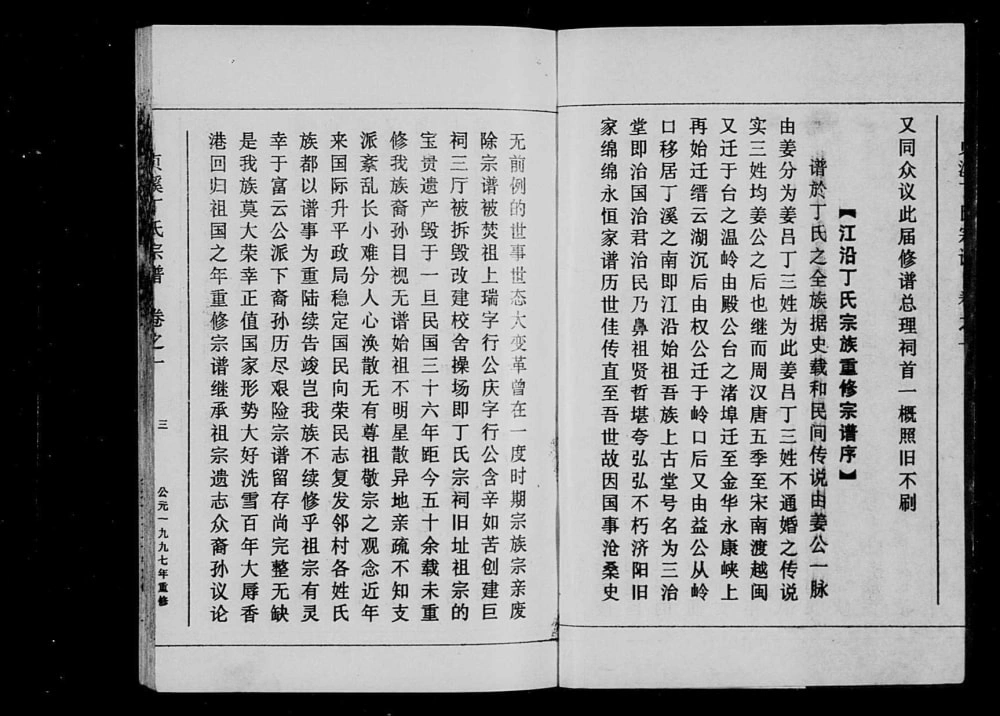 又同众议此届修谱总理祠首一概照旧不刷
【江沿丁氏宗族重修宗谱序】
谱於丁氏之全族据史载和民间传说由姜公一脉
由姜分为姜吕丁三姓为此姜吕丁三姓不通婚之传说
实三姓均姜公之后也继而周汉唐五季至宋南渡越闽
又迁于台之温岭由殿公台之渚埠迁至金华永康峡上
再始迁缙云湖沉后由权公迁于岭口后又由益公从岭
口移居丁溪之南即江沿始祖吾族上古堂号名为三治
堂即治国治君治民乃鼻祖贤哲堪夸弘弘不朽济阳旧
家绵绵永恒家谱历世佳传直至吾世故因国事沧桑史
无前例的世事世态大变革曾在一度时期宗族宗亲废
除宗谱被焚祖上瑞字行公庆字行公含辛如苦创建巨
祠三厅被拆毁改建校舍操场即丁氏宗祠旧址祖宗的
宝贵遗产毁于一旦民国三十六年距今五十余载未重
修我族裔孙目视无谱始祖不明星散异地亲疏不知支
派紊乱长小难分人心涣散无有尊祖敬宗之观念近年
来国际升平政局稳定国民向荣民志复发邻村各姓氏
族都以谱事为重陆续告竣岂我族不续修乎祖宗有灵
幸于富云公派下裔孙历尽艰险宗谱留存尚完整无缺
是我族莫大荣幸正值国家形势大好洗雪百年大辱香
港回归祖国之年重修宗谱继承祖宗遗志众裔孙议论
贞溪丁氏宗谱 卷之一 三 公元一九九七年重修